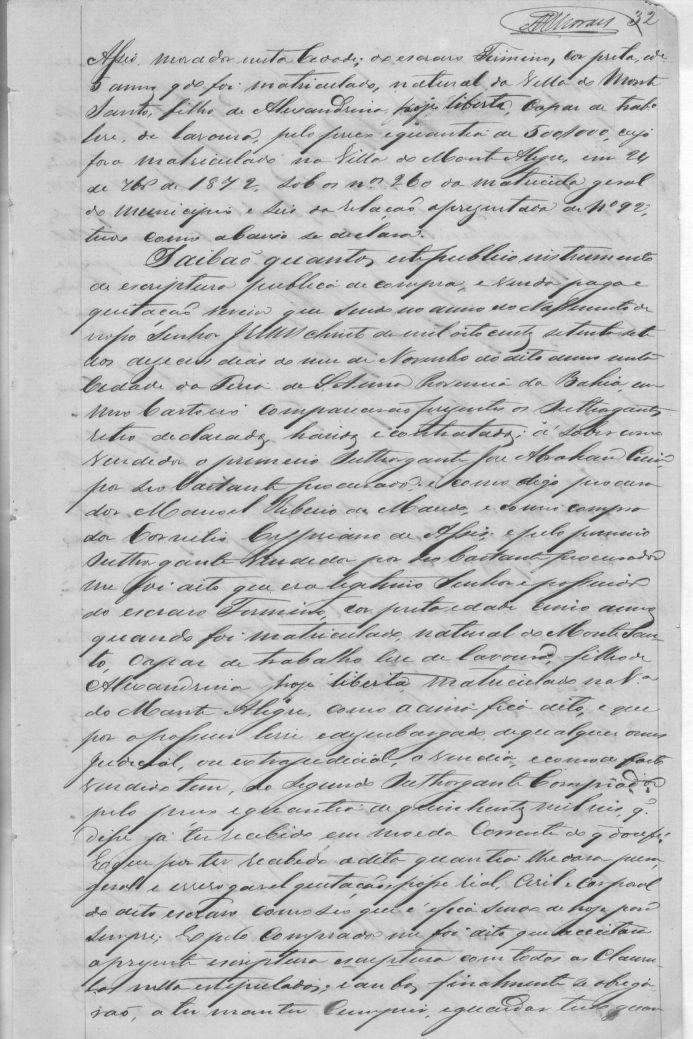 32
Assis, morador nesta Cidade; do escravo Firmino, cor preta, id.e
5 annos q.do foi matriculado, natural da Villa do Monte
Santo, filho de Alexandrina, hoje liberta, capaz de traba
leve, de lavoura, pelo preço e quantia de 500$000, cujo
fora matriculado na Villa do Monte Alegre, em 24
de 7br.o de 1872, sob os nos 260 da matricula geral
do municipio e seis da relação apresentada de nº 92,
tudo como abaixo se declara.
Saibaõ quantos este publico instrumento
de escriptura publica de compra, e venda paga e
quitação virem que sendo no anno do Nascimento de
nosso Senhor JESUS christo de mil oito centos setenta sete
aos dezeseis dias do mez de Novembro do dito anno nesta
Cidade da Feira de S. Anna Provincia da Bahia, em
meu Cartorio compareceraõ presentes os Outhorgantes
retro declarados, havidos e contratados; á saber como
vendedor o primeiro Outhorgante José Abraham
por seo bastante procurador, e como digo procura
dor Manoel Ribeiro de Macedo, e como compra
dor Cornelio Cypriano de Assis; e pelo primeiro
Outhorgante vendedor por seo bastante procurador
me foi dito que era legitimo Senhor e possuidor
do escravo Firmino, cor preta idade cinco annos
quando foi matriculado, natural do Monte San
to, capaz de trabalho leve de lavoura, filho de
Alexandrina hoje liberta matriculado na V.a
do Monte Alegre, como acima fica dito, e que
por o possuir livre e dezembargado de qualquer onus
judicial, ou extrajudicial, o vendia, e como de facto
vendido tem, ao Segundo Outhorgante Comprador
pelo preço e quantia de quinhentos mil reis, q.
disse já ter recebido em moeda Corrente do q dou fé.
E que por ter recebido a dita quantia lhe dava plena
geral e irrevogavel quitação, posse rial, Civil e Corporal
do dito escravo como seo que é e fica sendo de hoje para
sempre; E pelo comprador me foi dito que acceitava
a prezente escriptura escriptura com todas as Clausu
las nella estipulados; e ambos finalmente se obriga
raõ, a ter manter Cumprir, e guardar tudo quan